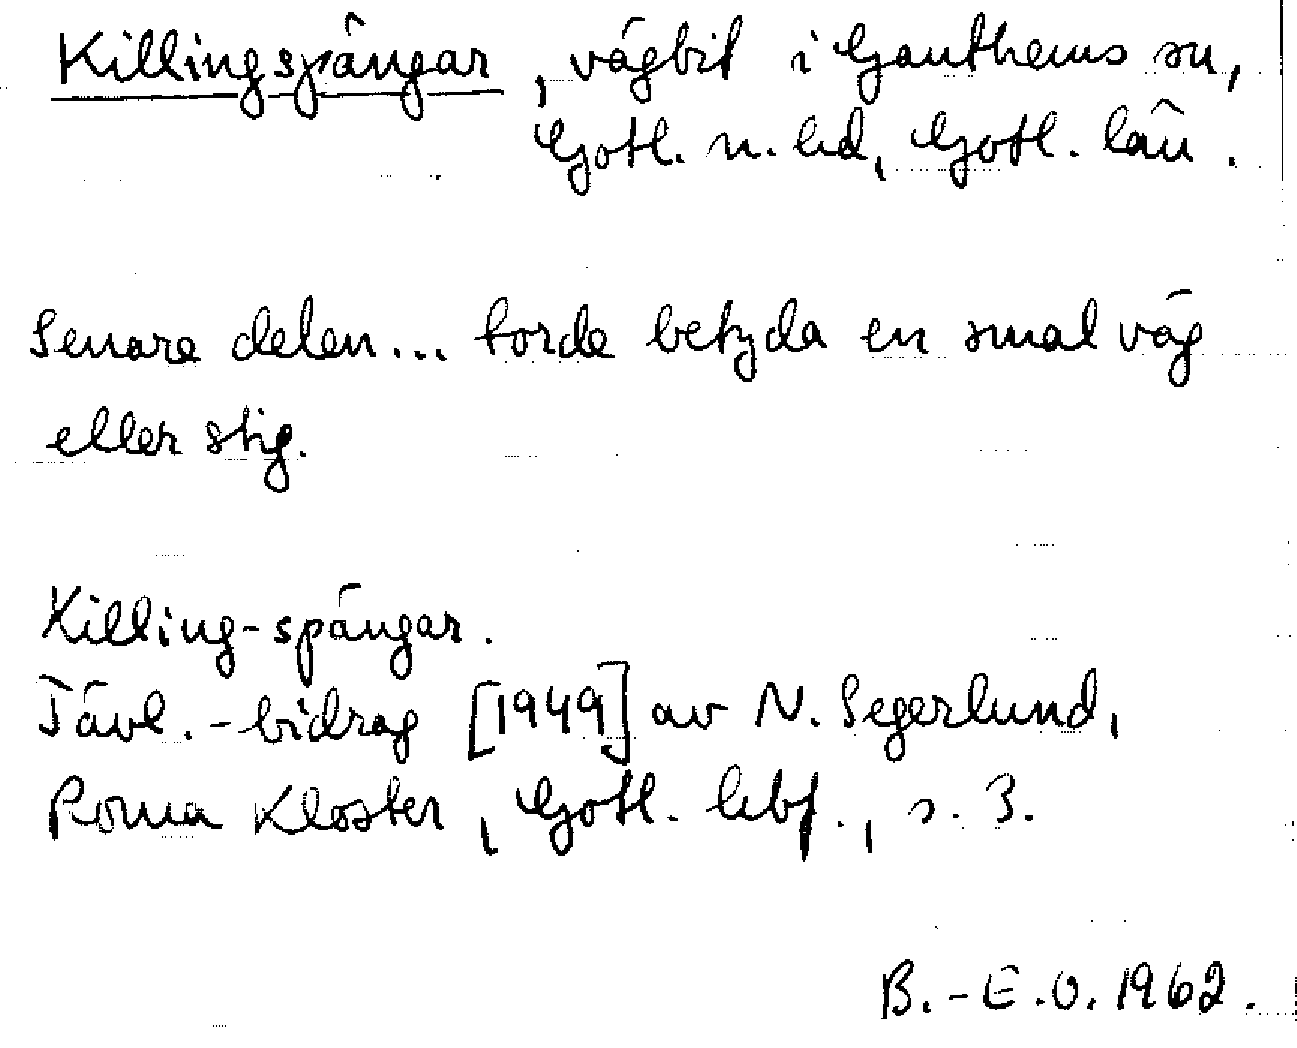 Killingspängar, vägbit i Ganthems sn,
Gotl. n. hd, Gotl. län.
Senare delen... torde betyda en smal väg
eller stig.
Killing-spängar.
Tävl.-bidrag [1949] av N. Segerlund,
Roma Kloster, Gotl. hbf., s. 3.
B.-E.O. 1962.